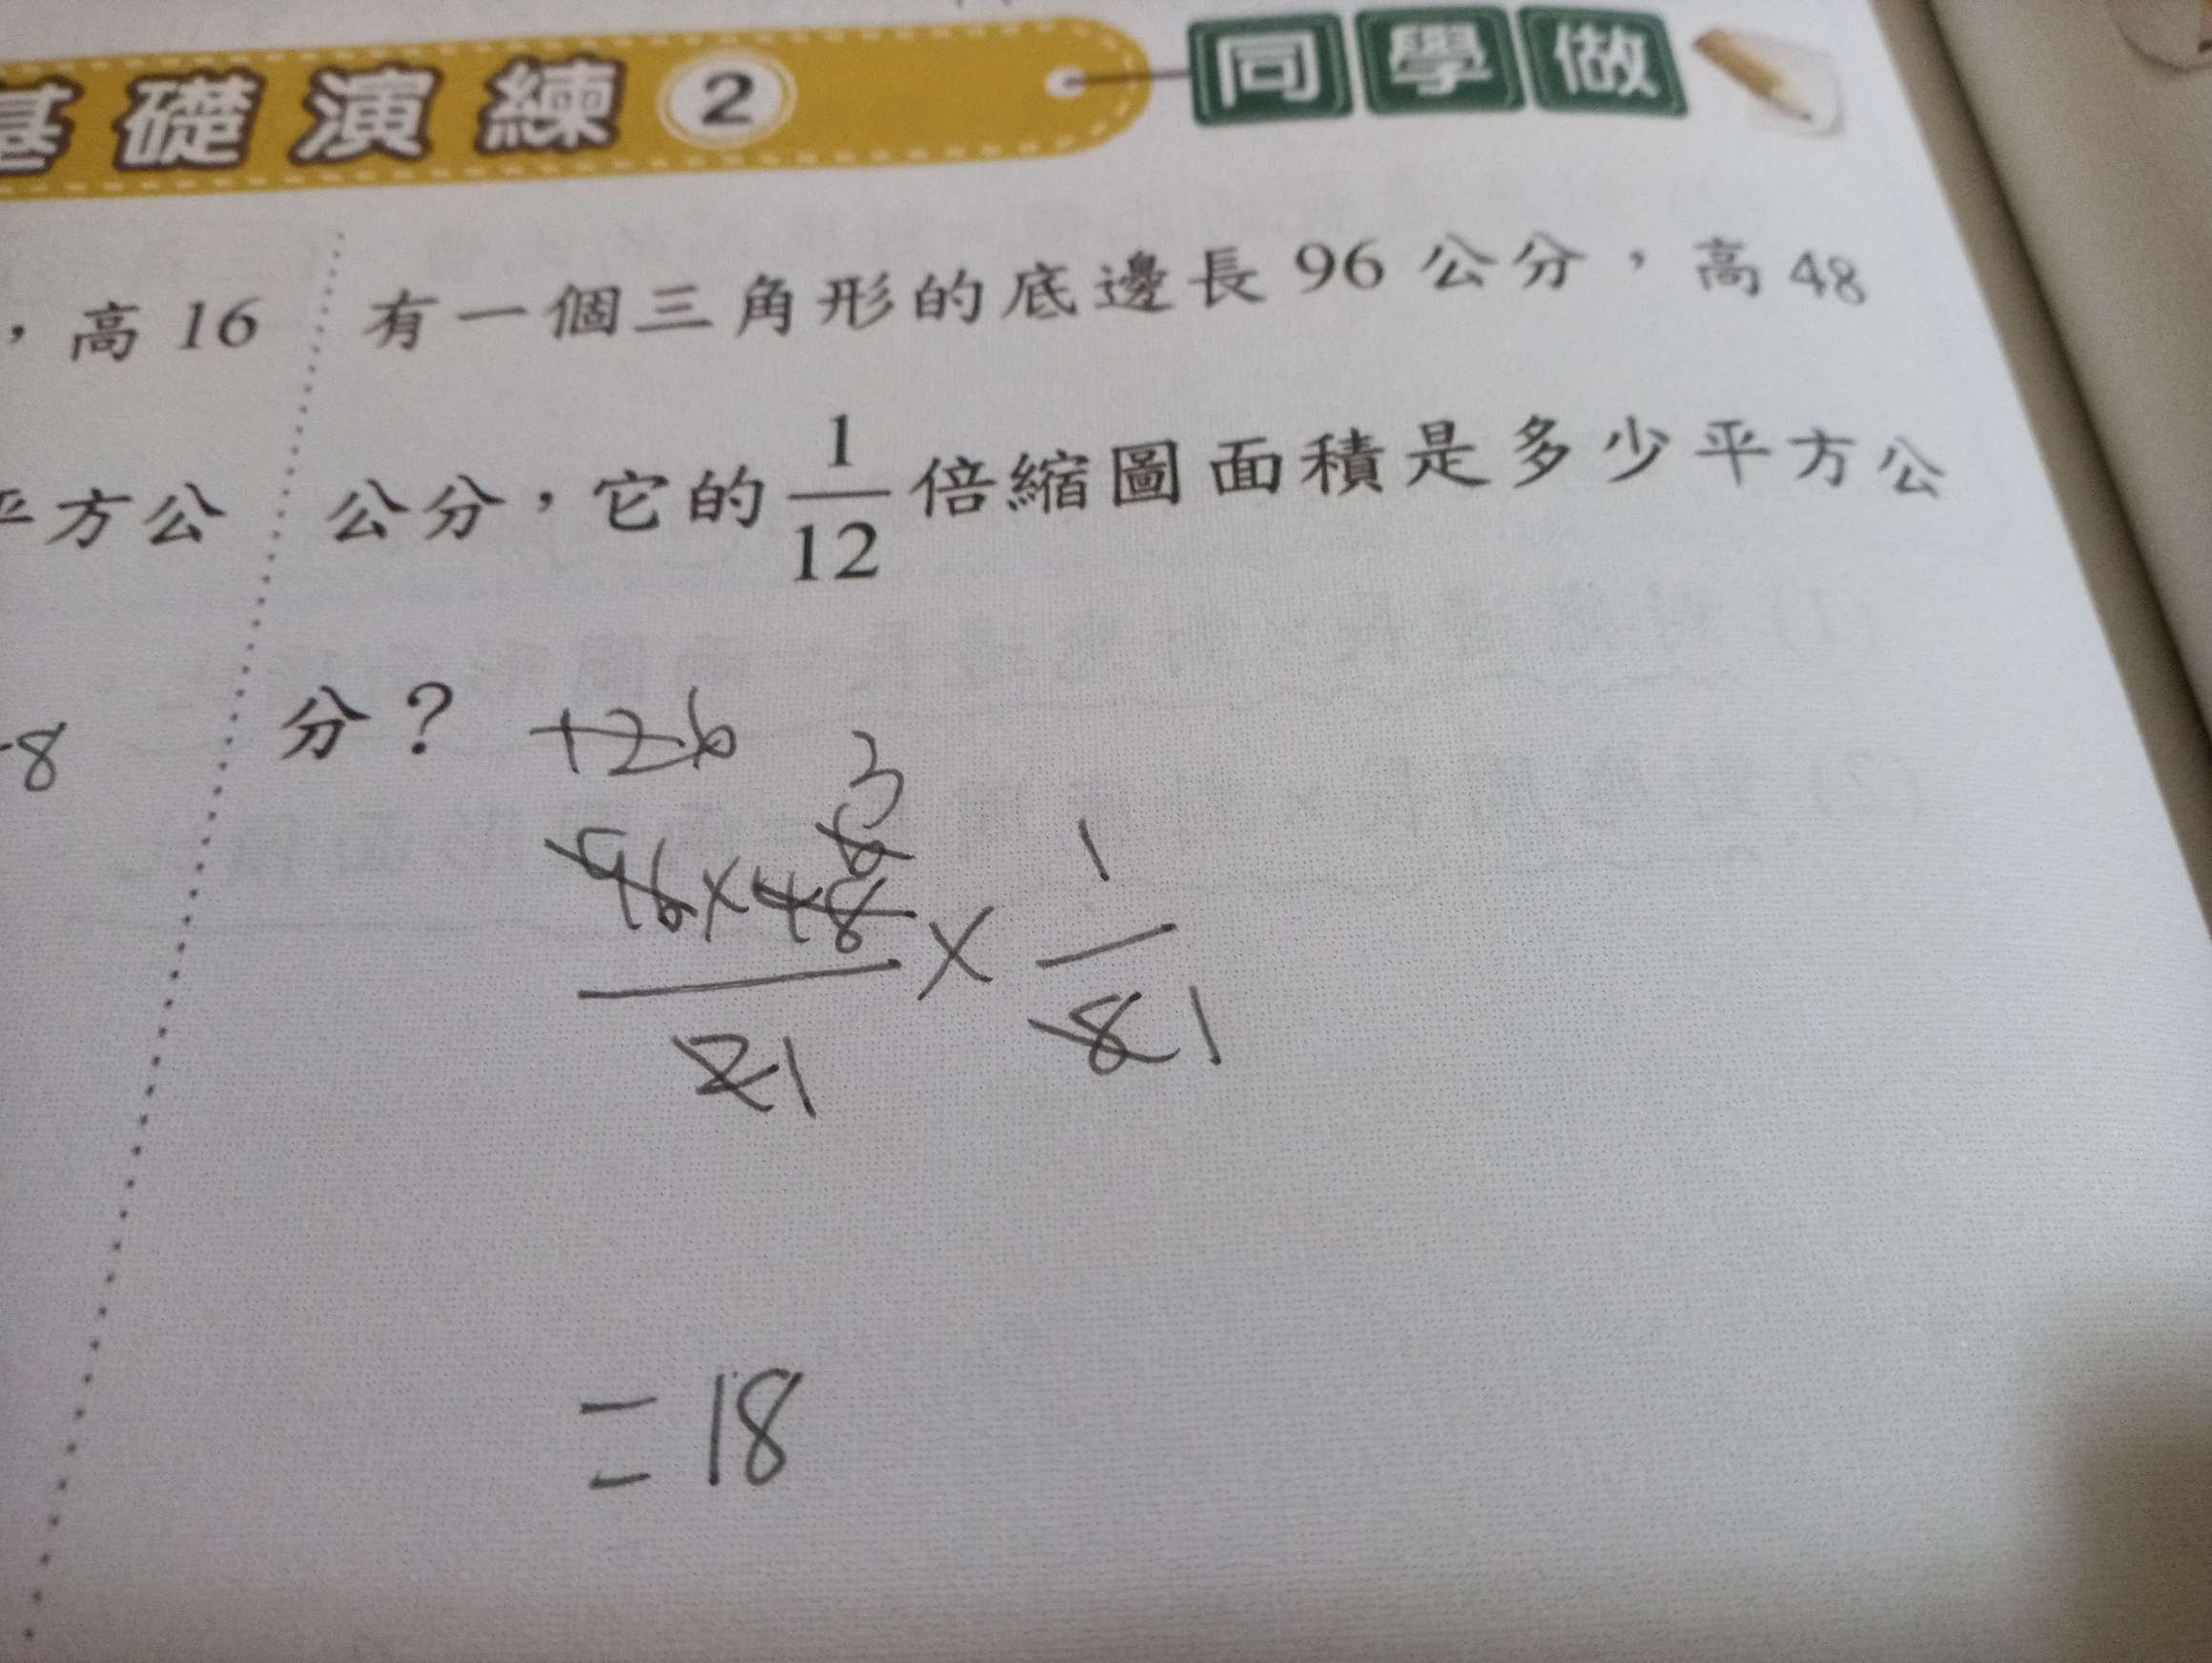 基礎演練 2 同學做
，高 16
平方公
8
有一個三角形的底邊長 96 公分，高 48
公分，它的 1/12 倍縮圖面積是多少平方公
分？
3
6
96×48 × 1
21 81
=18